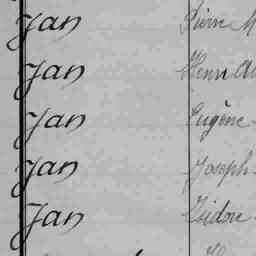 Jan Pierre M
Jan Henri
Jan Eugène
Jan Joseph
Jan Isidore